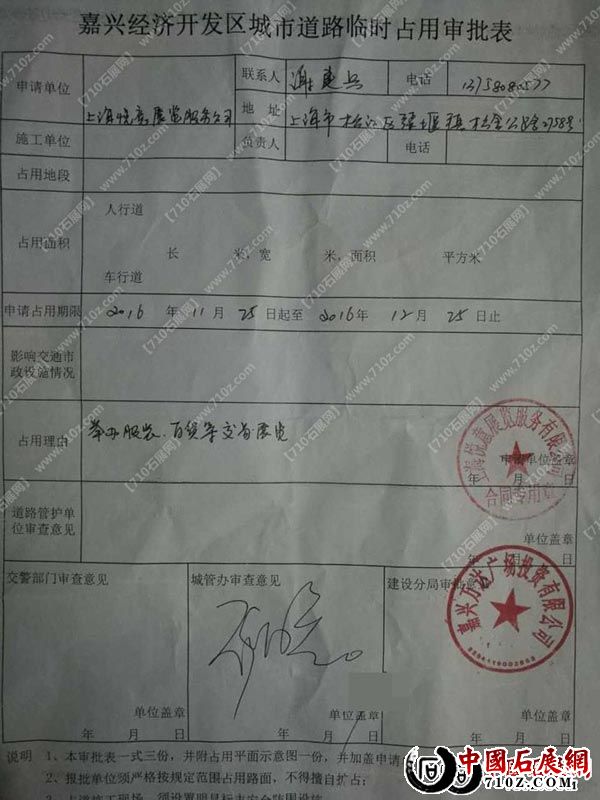 嘉兴经济开发区城市道路临时占用审批表
申请单位
上海悦意展览服务公司
联系人
电话
13758080577
地 址
上海市松江区张堰镇松金公路2758号
施工单位
负责人
电话
占用地段
占用面积
人行道
长 米，宽 米，面积 平方米
车行道
申请占用期限
2016 年 11 月 25 日起至 2016 年 12 月 25 日止
影响交通市
政设施情况
占用理由
举办服装、百货等交易展览
上海悦意展览服务有限公司
合同专用章
申请单位盖章
年 月 日
道路管护单
位审查意见
单位盖章
年 月 日
交警部门审查意见
城管办审查意见
建设分局审批意见
嘉兴万达广场投资有限公司
单位盖章
单位盖章
单位盖章
年 月 日
年 月 日
年 月 日
说明 1、本审批表一式三份，并附占用平面示意图一份，并加盖申请
2、报批单位须严格按规定范围占用路面，不得擅自扩占；
中国石展網
710Z.COM
【710石展网】
www.710z.com